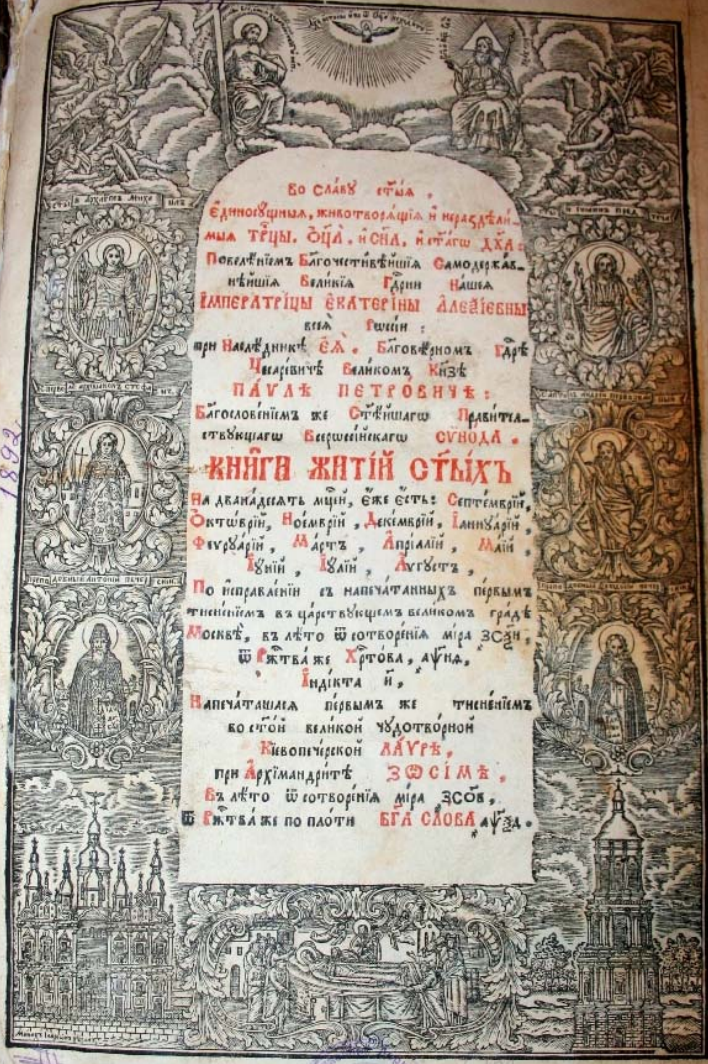 Во славу ст҃ыѧ,
Єдиносꙋщныѧ, животворѧщїѧ и҆ нераздѣли-
мыѧ Трⷪ҇цы. Ѻ҆ц҃а̀. и҆ Сн҃а, и҆ ст҃а́гѡ Дх҃а:
Повелѣ́нїемъ Благочести́вѣйшїѧ Самодержа́в-
нѣйшїѧ Вели́кїѧ Гдⷭ҇рни на́шеѧ
І҆МПЕРАТРІ́ЦЫ Є҆КАТЕРІ́НЫ А҆ЛЕѮІ́ЕВНЫ
всеѧ̀ Рѡссі́и:
при Наслѣ́дникѣ Є҆Ѧ̀. Благовѣ́рномъ Гдⷭ҇рѣ
Цесаре́вичѣ Вели́комъ Кн҃зѣ
ПА́ѴЛѢ ПЕТРО́ВИЧѢ:
Благослове́нїемъ же Ст҃ѣ́йшагѡ Прави́тел-
ствꙋющагѡ Всерѡссі́йскагѡ СѴНО́ДА.
КНИ̑ГИ ЖИТІ́Й СТ҃Ы́ХЪ
На двана́десѧть мцⷭ҇ей, є҆́же є҆́сть: Септе́мврїй,
Ѻ҆ктѡ́врїй, Ное́мврїй, Деке́мврїй, І҆аннꙋа́рїй,
Феврꙋа́рїй, Ма́ртъ, А҆прі́ллїй, Ма́їй,
І҆ꙋ́нїй, І҆ꙋ́лїй, А҆́ѵгꙋстъ,
По и҆справле́нїи съ напеча́танныхъ пе́рвымъ
тисне́нїемъ въ ца́рствꙋющемъ вели́комъ гра́дѣ
Москвѣ̀, въ лѣ́то ѿ сотворе́нїѧ мі́ра
ѿ Ржⷭ҇тва̀ же Хрⷭ҇то́ва,
І҆нді́кта и҃,
Напеча́ташасѧ пе́рвымъ же тисне́нїемъ
во ст҃о́й вели́кой чꙋдотво́рной
Кїевопече́рской ЛА́ѴРѢ,
при А҆рхїмандрі́тѣ ЗѠСІ́МѢ,
В лѣ́то ѿ сотворе́нїѧ мі́ра ҂зсов,
ѿ Ржⷭ҇тва̀ же по пло́ти БГ҃А СЛО́ВА ҂аѱѯд.
1892